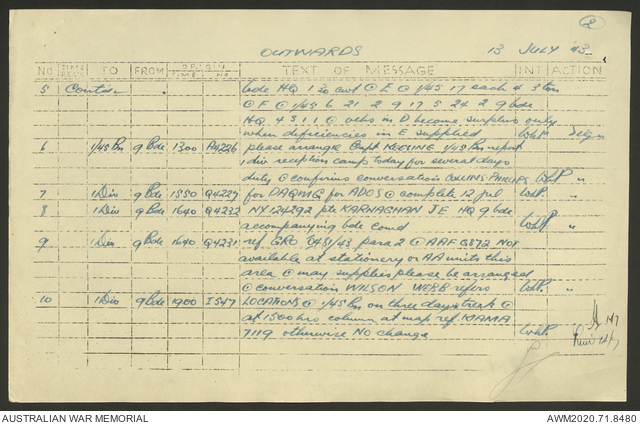 2
OUTWARDS 13 JULY 43
NO TIME REC'D TO FROM ORIGIN TIME NO TEXT OF MESSAGE INT ACTION
5 Contd. bde HQ 1 30 cwt @ E @ 1/45 17 each 4 3 ton
@ F @ 1/45 6 21 2 9 17 5 24 2 9 bde
HQ 4 3 1 1 @ vehs in D become surplus only
when deficiencies in E supplied WLP.
6 1/45 Bn 9 Bde 1300 A4226 please arrange Capt KEELING 1/45 Bn report
1 div reception camp today for several days
duty @ confirms conversation COLLINS-PHILLIPS WLP. "
7 1 Div 9 Bde 1550 Q4227 for DAQMG for ADOS @ complete 12 jul WLP. "
8 1 Div 9 Bde 1640 Q4232 NX124292 pte KARNAGHAN JE HQ 9 bde
accompanying bde comd WLP. "
9 1 Div 9 Bde 1640 Q4231 ref GRO 0451/43 para 2 @ AAF G872 NOT
available at stationery or AA units this
area @ may supplies please be arranged
@ conversation WILSON WEBB refers WLP. "
10 1 Div 9 Bde 1900 I547 LOCATIONS @ 1/45 Bn on three days trek @
at 1500 hrs column at map ref KIAMA
7119 otherwise NO change WLP.
AUSTRALIAN WAR MEMORIAL AWM2020.71.8480